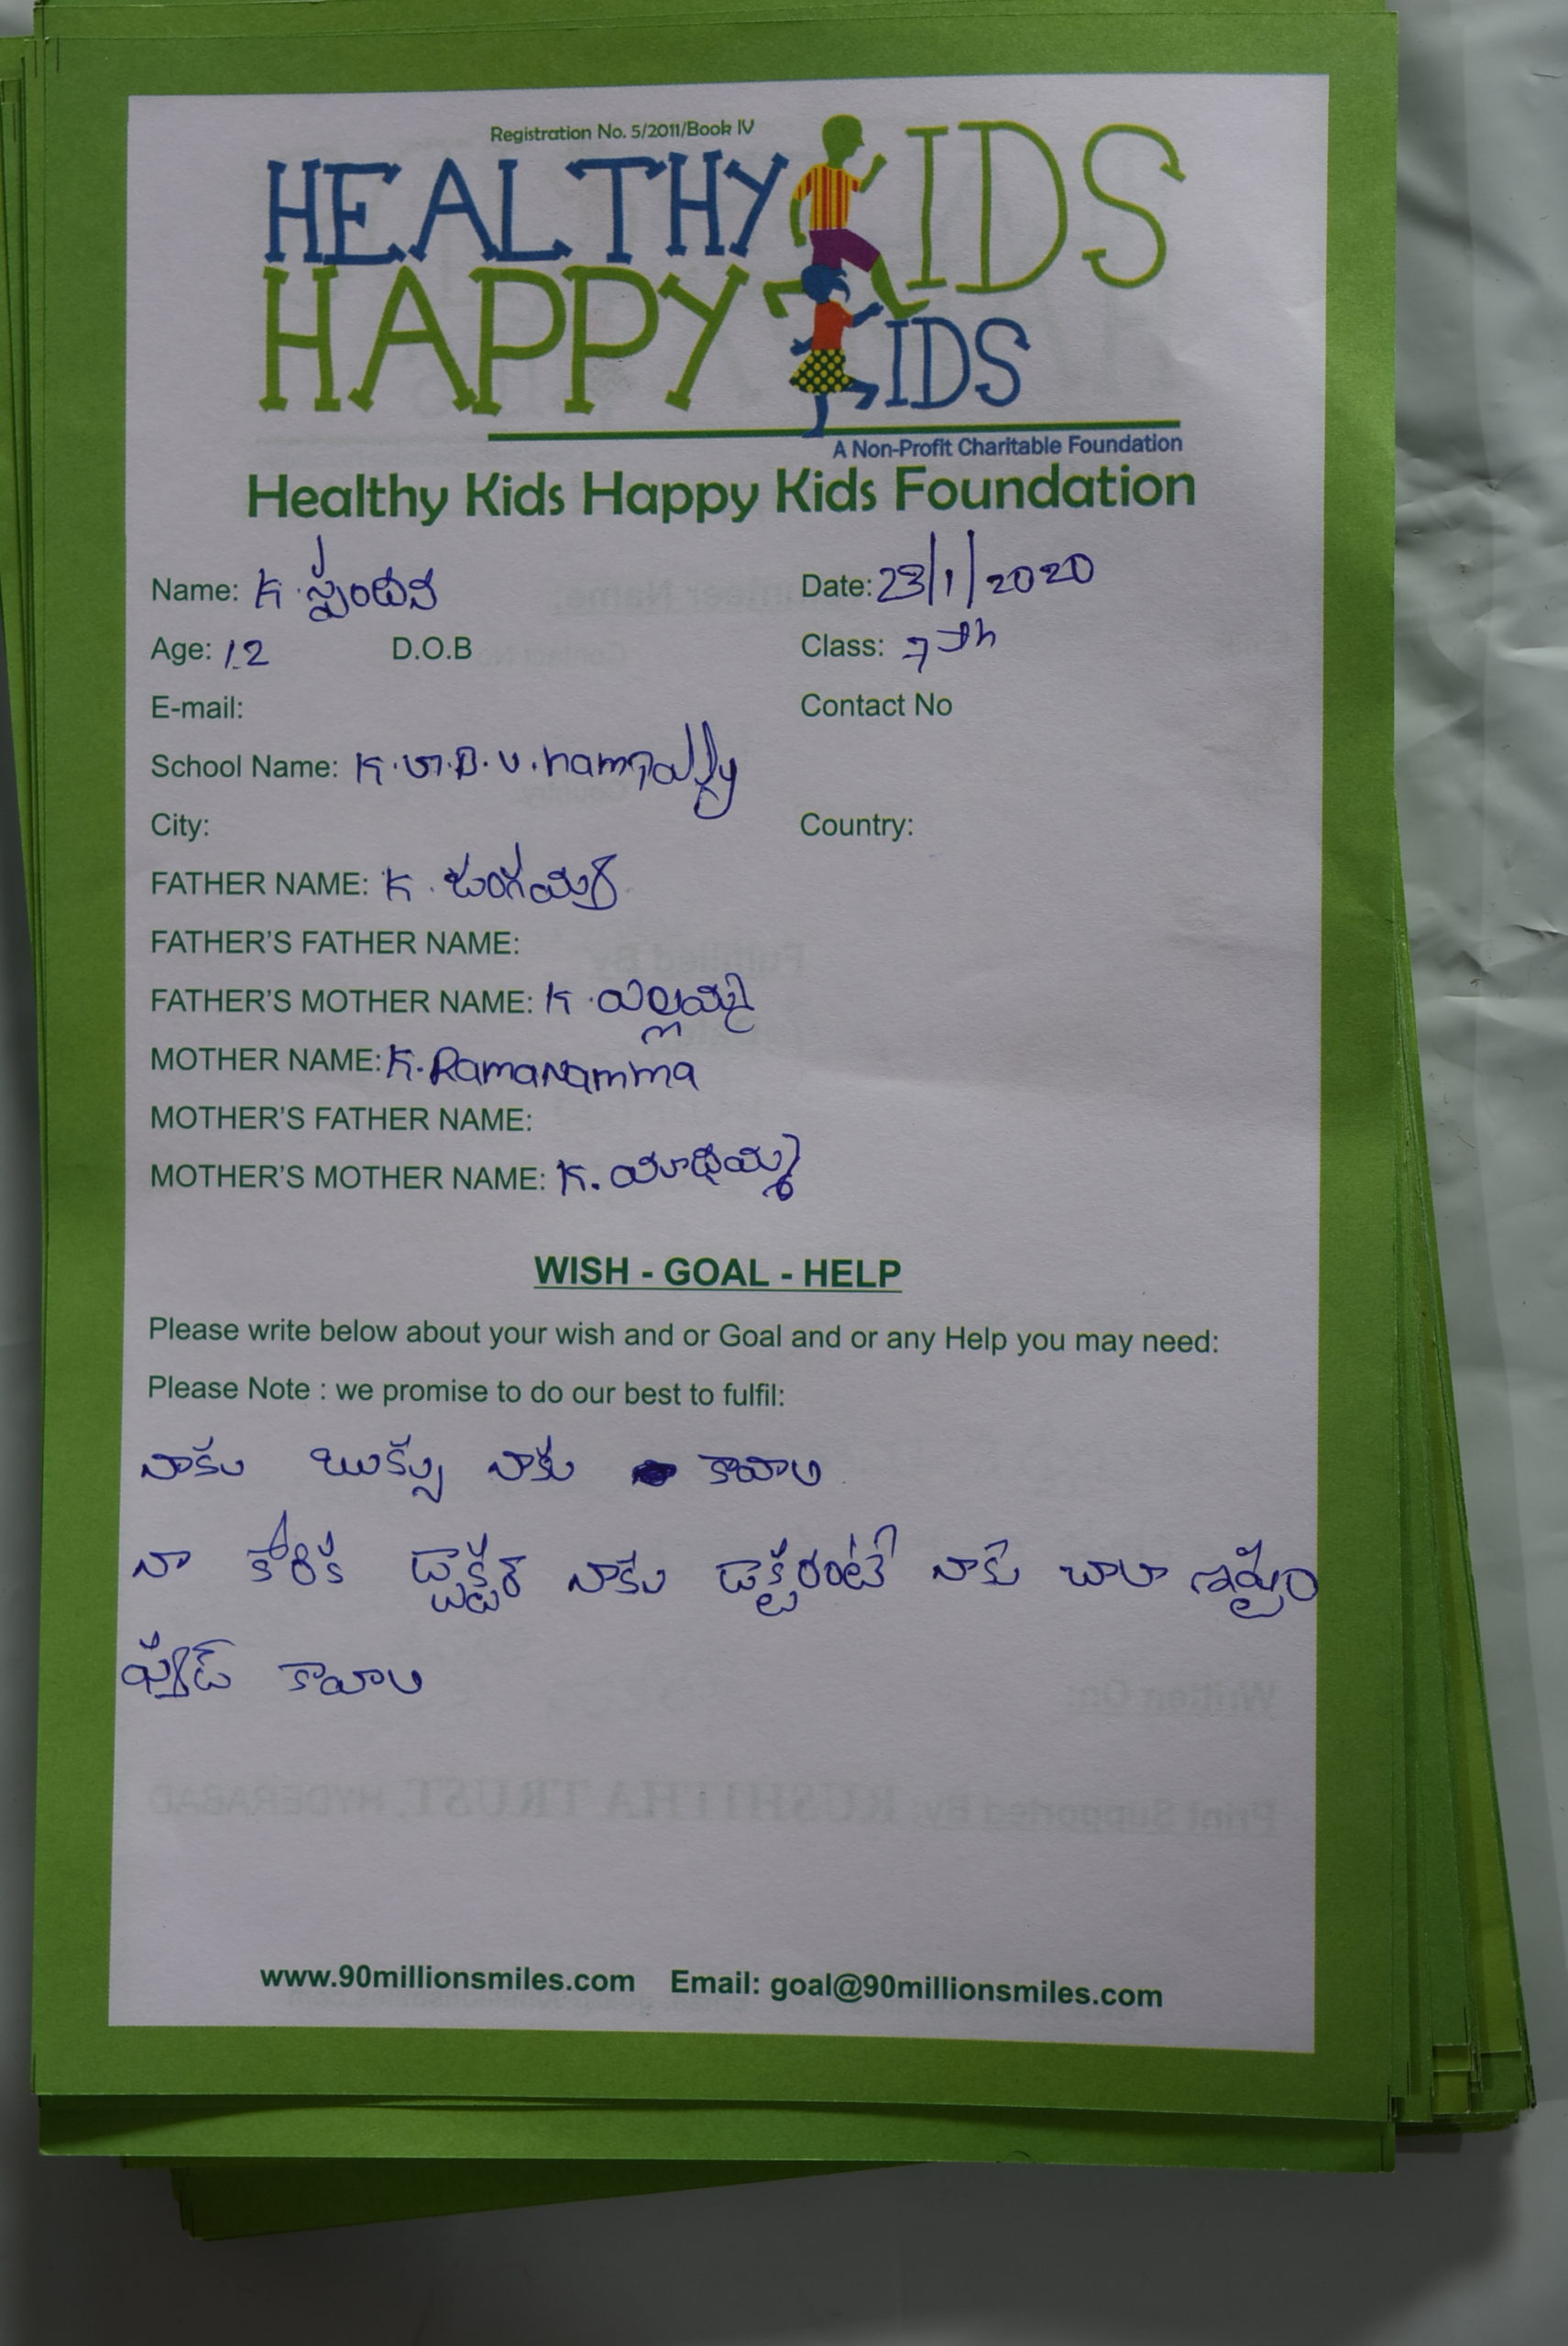 Registration No. 5/2011/Book IV
HEALTHY KIDS
HAPPY KIDS
A Non-Profit Charitable Foundation
Healthy Kids Happy Kids Foundation
Name: K. స్పందన Date: 23/1/2020
Age: 12 D.O.B Class: 7th
E-mail: Contact No
School Name: K.G.B.V. nampally
City: Country:
FATHER NAME: K. జంగయ్య
FATHER'S FATHER NAME:
FATHER'S MOTHER NAME: K. యల్లమ్మ
MOTHER NAME: K. Ramanamma
MOTHER'S FATHER NAME:
MOTHER'S MOTHER NAME: K. యాదమ్మ
WISH - GOAL - HELP
Please write below about your wish and or Goal and or any Help you may need:
Please Note : we promise to do our best to fulfil:
నాకు బుక్స్ నాకు కావాల
నా కోరిక డ్టాక్టర్ నాకు డాక్టరంటే నాకు చాలా ఇష్టం
కావాల
www.90millionsmiles.com Email: goal@90millionsmiles.com